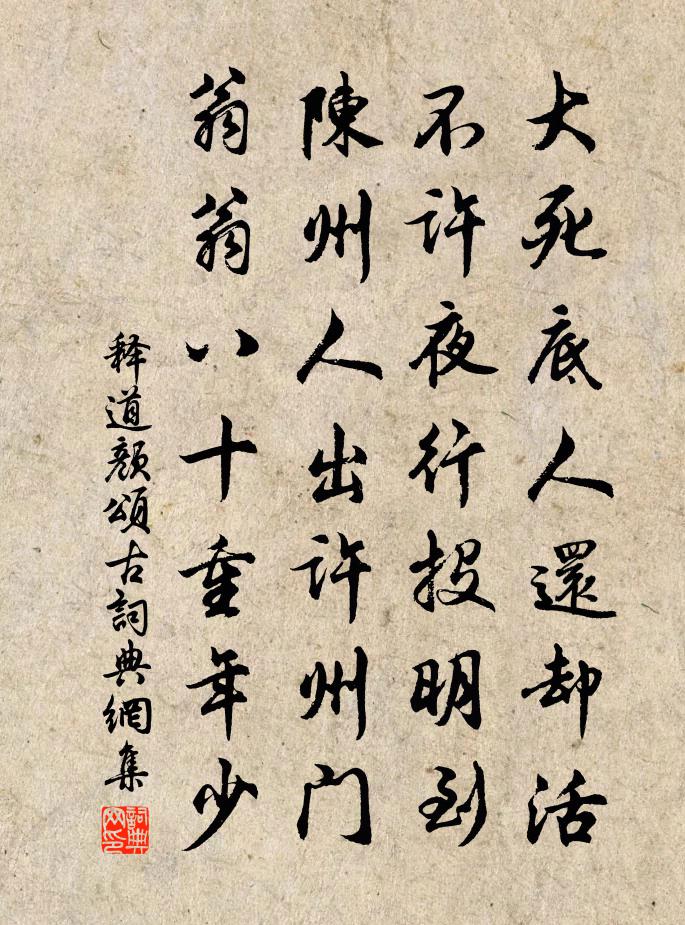 大死底人還却活
不許夜行投明到
陳州人出許州门
翁翁八十重年少
释道颜頌古詞典網集
詞典网印